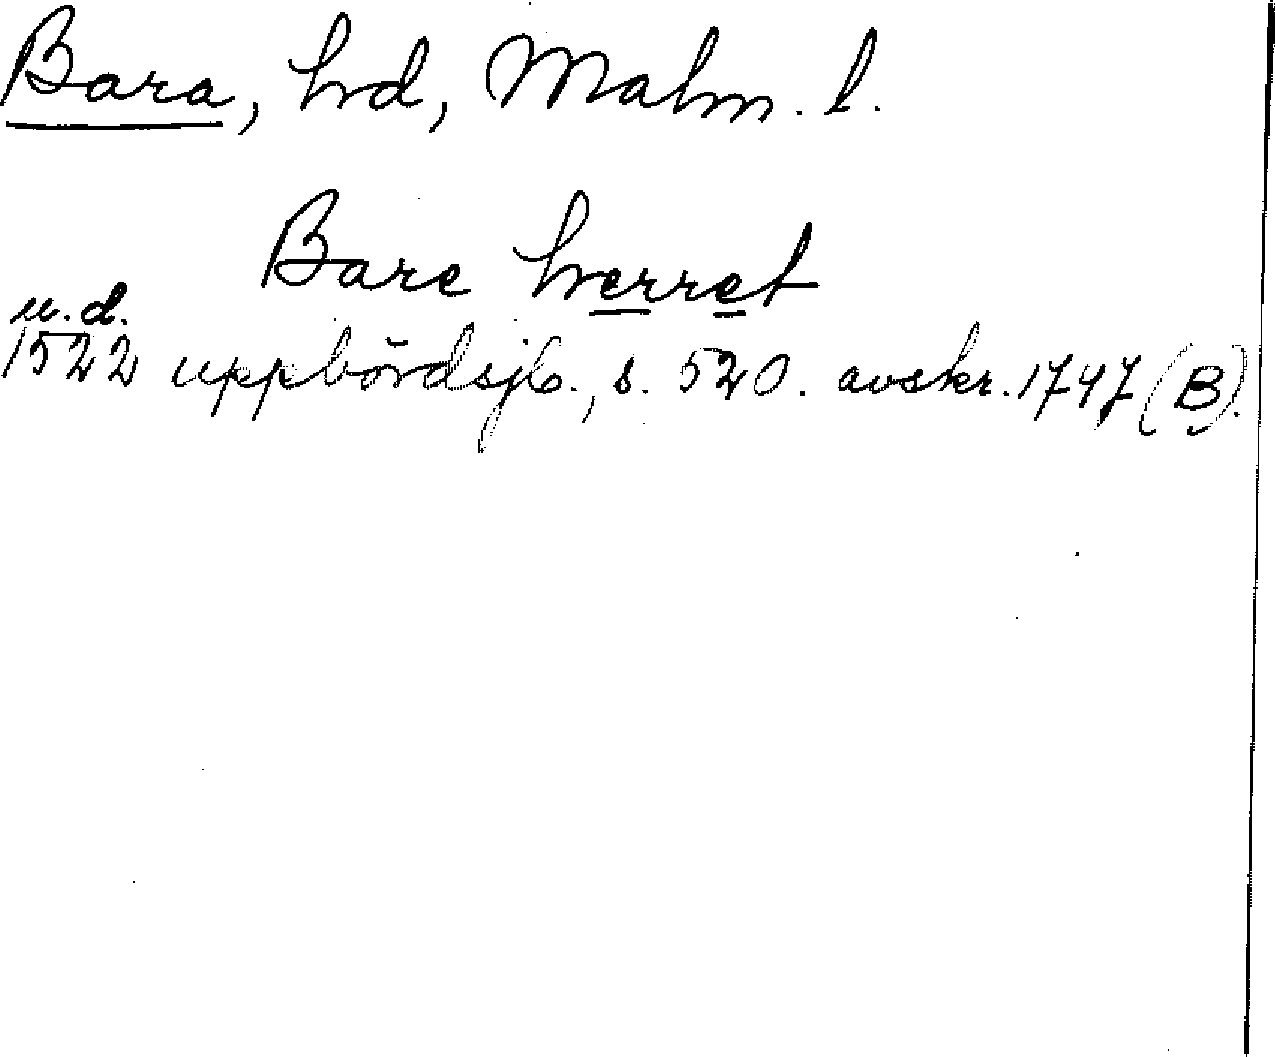 Bara, hd, Malm. l.
Bare herret
u. d.
1522 uppbördsjb., s. 520. avskr. 1747 (B).